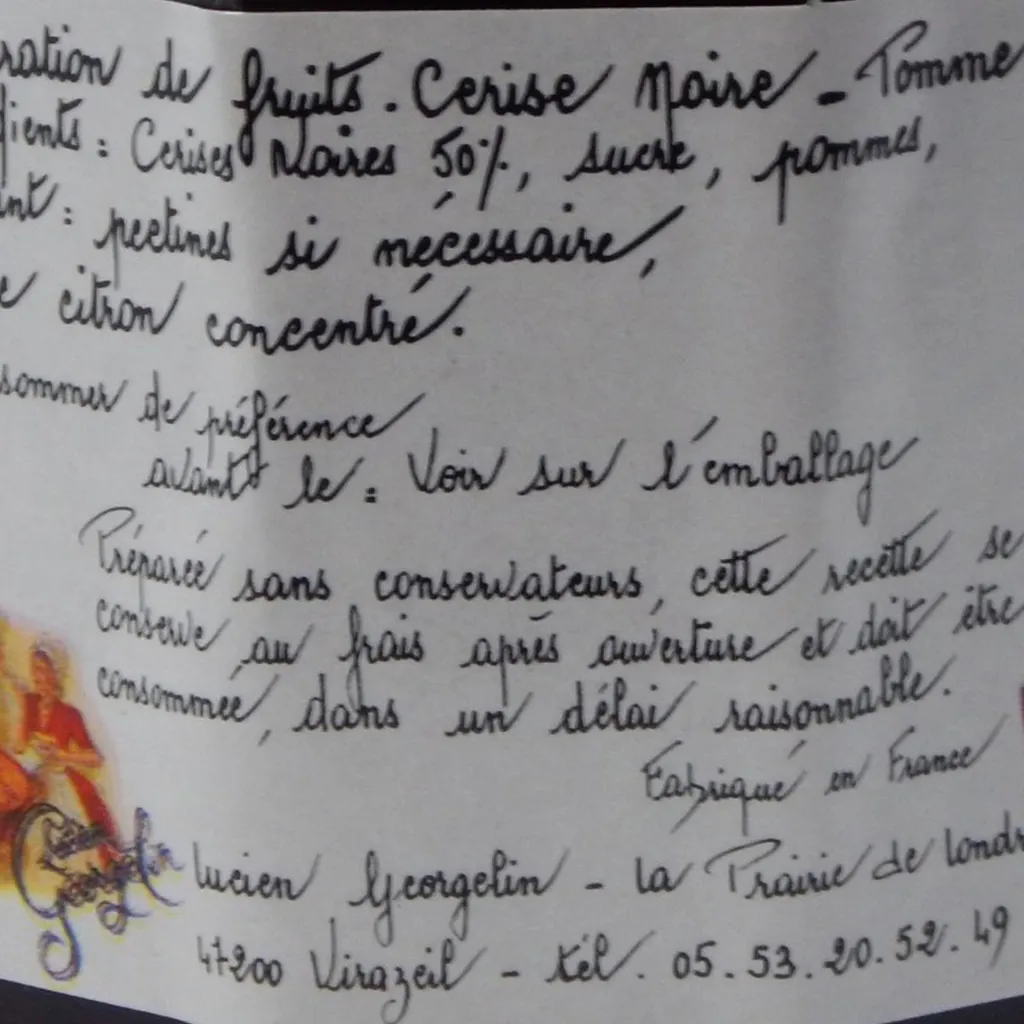 ration de fruits. Cerise Noire - Pomme
dients : Cerises Noires 50%, sucre, pommes,
ant : pectines si nécessaire,
e citron concentré.
sommer de préférence
avant le : Voir sur l'emballage
Préparée sans conservateurs, cette recette se
conserve au frais après ouverture et doit être
consommée, dans un délai raisonnable.
Fabriqué en France
Lucien Georgelin
Lucien Georgelin - La Prairie de Londr
47200 Virazeil - tél. 05.53.20.52.49